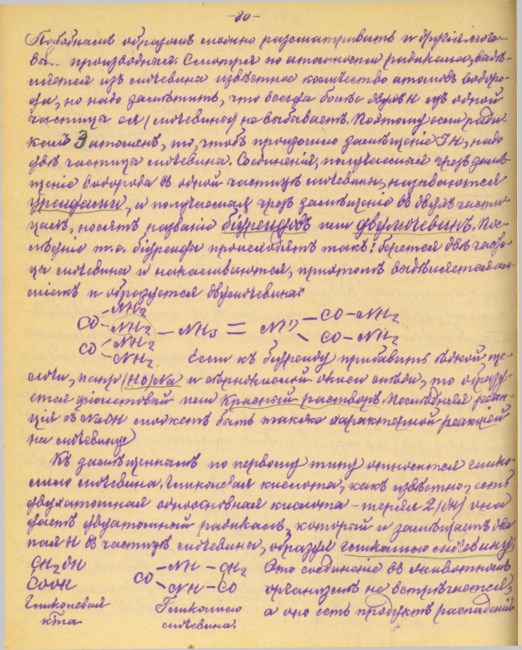 -80-
Подобнымъ образомъ можно разсматривать и другія мочеви-
ва.. производныя. Смотря по атомности радикала, выдѣ-
ляется изъ мочевины извѣстное количество атомовъ водоро-
да, но надо замѣтить, что всегда болѣе двухъ H изъ одной
частицы ея (мочевины) не выбываетъ. Поэтому если ради-
калъ 3 атоменъ, то, чтобъ произошло замѣщеніе 3 H, надо
двѣ частицы мочевины. Соединенія, получаемыя чрезъ замѣ-
щеніе водорода въ одной частицѣ мочевины, называются
уреидами, а получаемыя чрезъ замѣщеніе въ двухъ части-
цахъ, носятъ названіе біуреидовъ или двумочевинъ. Пос-
лѣднія т.е. біуреиды происходятъ такъ: берется двѣ части-
цы мочевины и накаливаются, притомъ выдѣляется ам-
міакъ и образуется двумочевина:
CO NH2 NH2 CO NH2 NH2 — NH3 = NH CO—NH2 CO—NH2
Если къ біуреиду прибавить ѣдкой ще-
лочи, напр (HO)Na и сѣрнокислой окиси мѣди, то образу-
ется фіолетовый или Красный растворъ. Послѣдняя реак-
ція съ NaOH можетъ быть также характерной реакціей
на мочевину.
Къ замѣщеннымъ по первому типу относится глико-
лило мочевина. Гликолевая кислота, какъ извѣстно, есть
двухатомная одноосновная кислота - теряя 2(OH) она
даетъ двуатомный радикалъ, который и замѣщаетъ два
пая H въ частицѣ мочевины, образуя гликолило мочевину:
CH2OH CO NH — CH2 Это соединеніе въ животномъ
COOH NH — CO организмѣ не встрѣчается,
Гликолевая Гликолило а оно есть продуктъ распаденія
к-та мочевина.